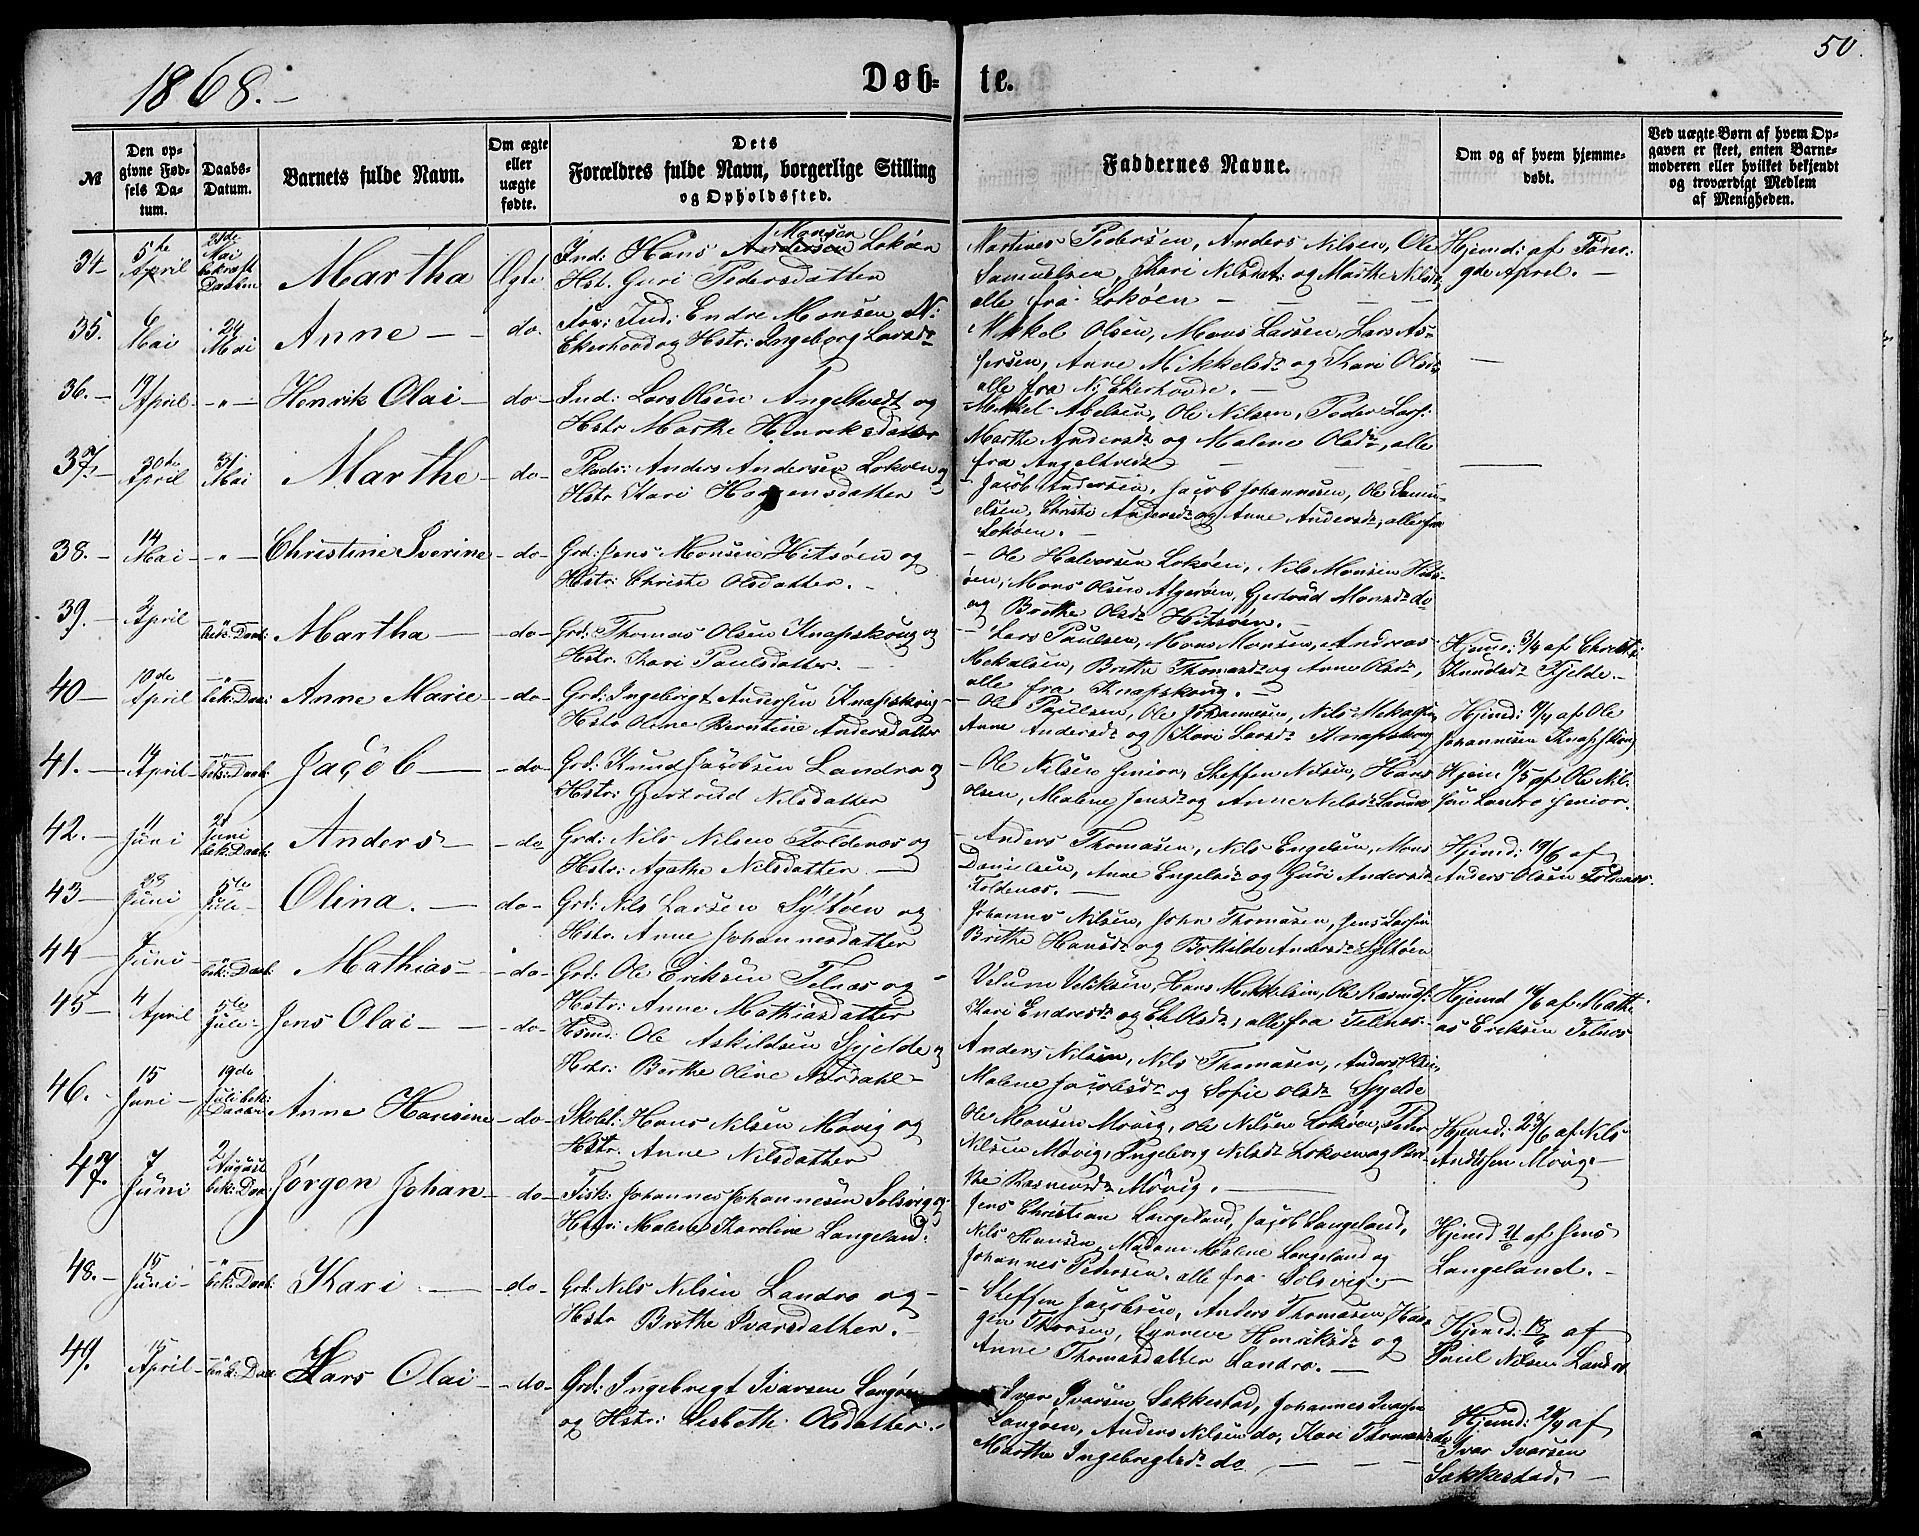 50.
1868.-
Døb-te.
№
Den op-
givne Fød-
sels Da-
tum.
Daabs-
Datum.
Barnets fulde Navn.
Om ægte
eller
uægte
fødte.
Dets
Forældres fulde Navn, borgerlige Stilling
og Opholdssted.
Faddernes Navne.
Om og af hvem hjemme-
døbt.
Ved uægte Børn af hvem Op-
gaven er skeet, enten Barne-
moderen eller hvilket bekjendt
og troværdigt Medlem
af Menigheden.
34- 5te April Mai bekræft Daaben Martha Ægte
Ind: Hans Andersen Monsen Lokøen
Hst. Guri Pedersdatter
Martines Pedersen, Anders Nilsen, Ole
Samuelsen, Kari Nilsdat: og Marthe Nilsd.
alle fra Lokøen -
Hjemd: af Forrige de April. -
35. 6 Mai 24 Mai Anne - - do
Ind: Endre Monsen N:
Ekerhovd og Hstr: Ingeborg Larsdr
Mikkel Olsen, Mons Larsen, Lars As-
persen, Anne Mikkelsdr og Kari Olsdr
alle fra N: Ekerhovde. -
36.- 19 April - " - Henrik Olai - do -
Ind: Lars Olsen Angeltvedt og
Hstr Marthe Henriksdatter
Mikkel Abelsen, Ole Nilsen, Peder Lars:
Marthe Andersdr og Malene Olsdr, alle
fra Angeltvedt
37.- 30te April 31 Mai Marthe - do-
Pladr: Anders Andersen Lokøen og
Hstr Kari Hagensdatter
- Jacob Andersen, Jacob Johannesen, Ole Samu-
elsen, Christi Andersdr og Anne Andersdr, alle fra
Lokøen. -
38.- 14 Mai - " - Christine Iverine - do -
Grd: Jens Monsen Hitsøen og
Hstr: Christi Olsdatter. -
- Ole Halvorsen Lokøen, Nils Monsen Hits-
øen, Mons Olsen Algerøen, Gjertrud Monsdr do
og Brithe Olsdr Hitsøen. -
39. 3 April bek: Daab: Martha - - do -
Grd: Thomas Olsen Knapskoug og
Hstr: Kari Paulsdatter. -
- Lars Paulsen, Mons Monsen, Andreas
Mekalsen, Brithe Thomasdr og Anne Olsdr,
alle fra Knapskoug. -
Hjemd: 3/4 af Christi
Knudsdr Fjelde. -
40- 10de April bek: Daab: Anne Marie - do -
Grd: Ingebrigt Andersen Knapskoug
Hstr Oline Berntine Andersdatter
- Ole Paulsen, Ole Johannesen, Nils Mekalsen,
Anne Andersdr og Kari Larsdr Knapskoug
Hjemd: af Ole
Johannesen Knapskoug
41.- 14 April - bek: Daab: Jacob - - do -
Grd: Knud Jacobsen Landro og
Hstr: Gjertrud Nilsdatter
- Ole Nilsen Senior, Steffen Nilsen, Hans
Olsen, Malene Jensdr og Anne Nilsdr Landro
Hjem af Ole Nil-
sen Landro Senior.
42.- 11 Juni 21 Juni bek: Daab: Anders - - do
Grd: Nils Nilsen Foldenæs og
Hstr: Agathe Nilsdatter. -
- Anders Thomasen, Nils Engelsen, Mons
Danielsen, Anne Engelsdr og Guri Andersdr
Foldenæs. -
Hjemd: 19/6 af
Anders Olsen Foldenæs.
43- 23 Juni 5te Juli - Olina. - do -
Grd: Nils Larsen Syltøen og
Hstr: Anne Johannesdatter
Johannes Nilsen, John Thomasen, Jens Larsen
Brithe Hansdr og Bothilde Andersdr Syltøen
44- 7 Juni - bek: Daab: Mathias - - do -
Grd: Ole Eriksen Telnæs og -
Hstr: Anne Mathiasdatter
Villum Villiksen, Hans Mikkelsen, Ole Rasmus:
Kari Endresdr og Eli Olsdr, alle fra Telnæs.
Hjemd af Mathi-
as Eriksen Telnæs
45- 4 April 5te Juli - Jens Olai - - do -
Hsmd: Ole Askildsen Gjelde og
Hstr: Berthe Oline Nordahl -
Anders Nilsen, Nils Thomasen, Anders Olsen,
Malene Jacobsdr og Sofie Olsdr Gjelde
46.- 15 Juni - 19de Juli bek: Daaben Anne Hansine - do -
Skoleh: Hans Nilsen Møvig og
Hstr: Anne Nilsdatter
Ole Monsen Møvig, Ole Nilsen Lokøen, Peder
Nilsen Møvig, Ingeborg Nilsdr Lokøen og Ber-
the Rasmusdr Møvig. -
Hjemd: 23/6 af Nils
Anderssen Møvig. -
47. 7 Juni 2 August bek: Daab Jørgen Johan - do -
Fisk: Johannes Johannesen Solsvig og
Hstr: Malene Karoline Langeland.
Jens Christian Langeland, Jacob Langeland,
Nils Hansen, Madam Malene Langeland og
Johannes Petersen, alle fra Solsvig. -
Hjemd 21/6 af Jens
Langeland. -
48.- 15 Juni - bek: Daab: Kari - - do -
Grd: Nils Nilsen Landro og -
Hstr Brithe Ivarsdatter. -
- Steffen Jacobsen, Anders Thomasen, Haa-
gen Thorsen, Synneve Henriksdr og
Anne Thomasdatter Landro. -
Hjemd: af
Poul Nilsen Landro
49. 15 April - bek: Daab Lars Olai - - do -
Grd: Ingebregt Ivarsen Langøen
og Hstr: Lisbeth Olsdatter. -
- Ivar Ivarsen Sekkestad, Johannes Ivarsen
Langøen, Anders Nilsen do, Kari Thomasdr do
Marthe Ingebregtsdr do -
Hjemd: 20/4 af
Ivar Ivarsen
Sekkestad. -